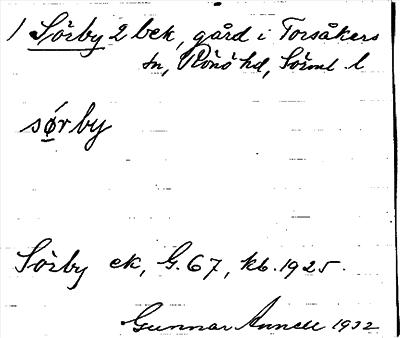 1 Sörby 2 bek, gård i Torsåkers
sn, Rönö hd, Sörml. l
sørby
Sörby ek, G. 67, kb. 1925.
Gunnar Annell 1932